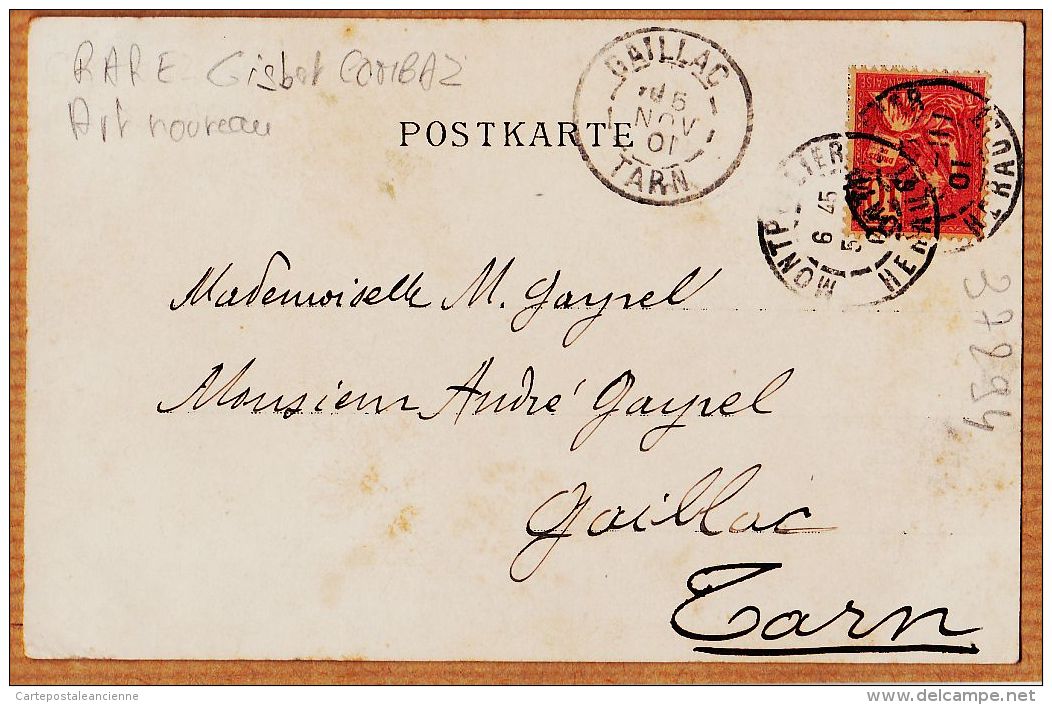 RARE Gisbert COMBAZ
Art nouveau
POSTKARTE
GAILLAC
6
NOV
01
TARN
MONTPELLIER
6 45
5
01
HERAULT
Mademoiselle M. Gayrel
Monsieur André Gayrel
Gaillac
Tarn
37994
Cartepostaleancienne
delcampe.net